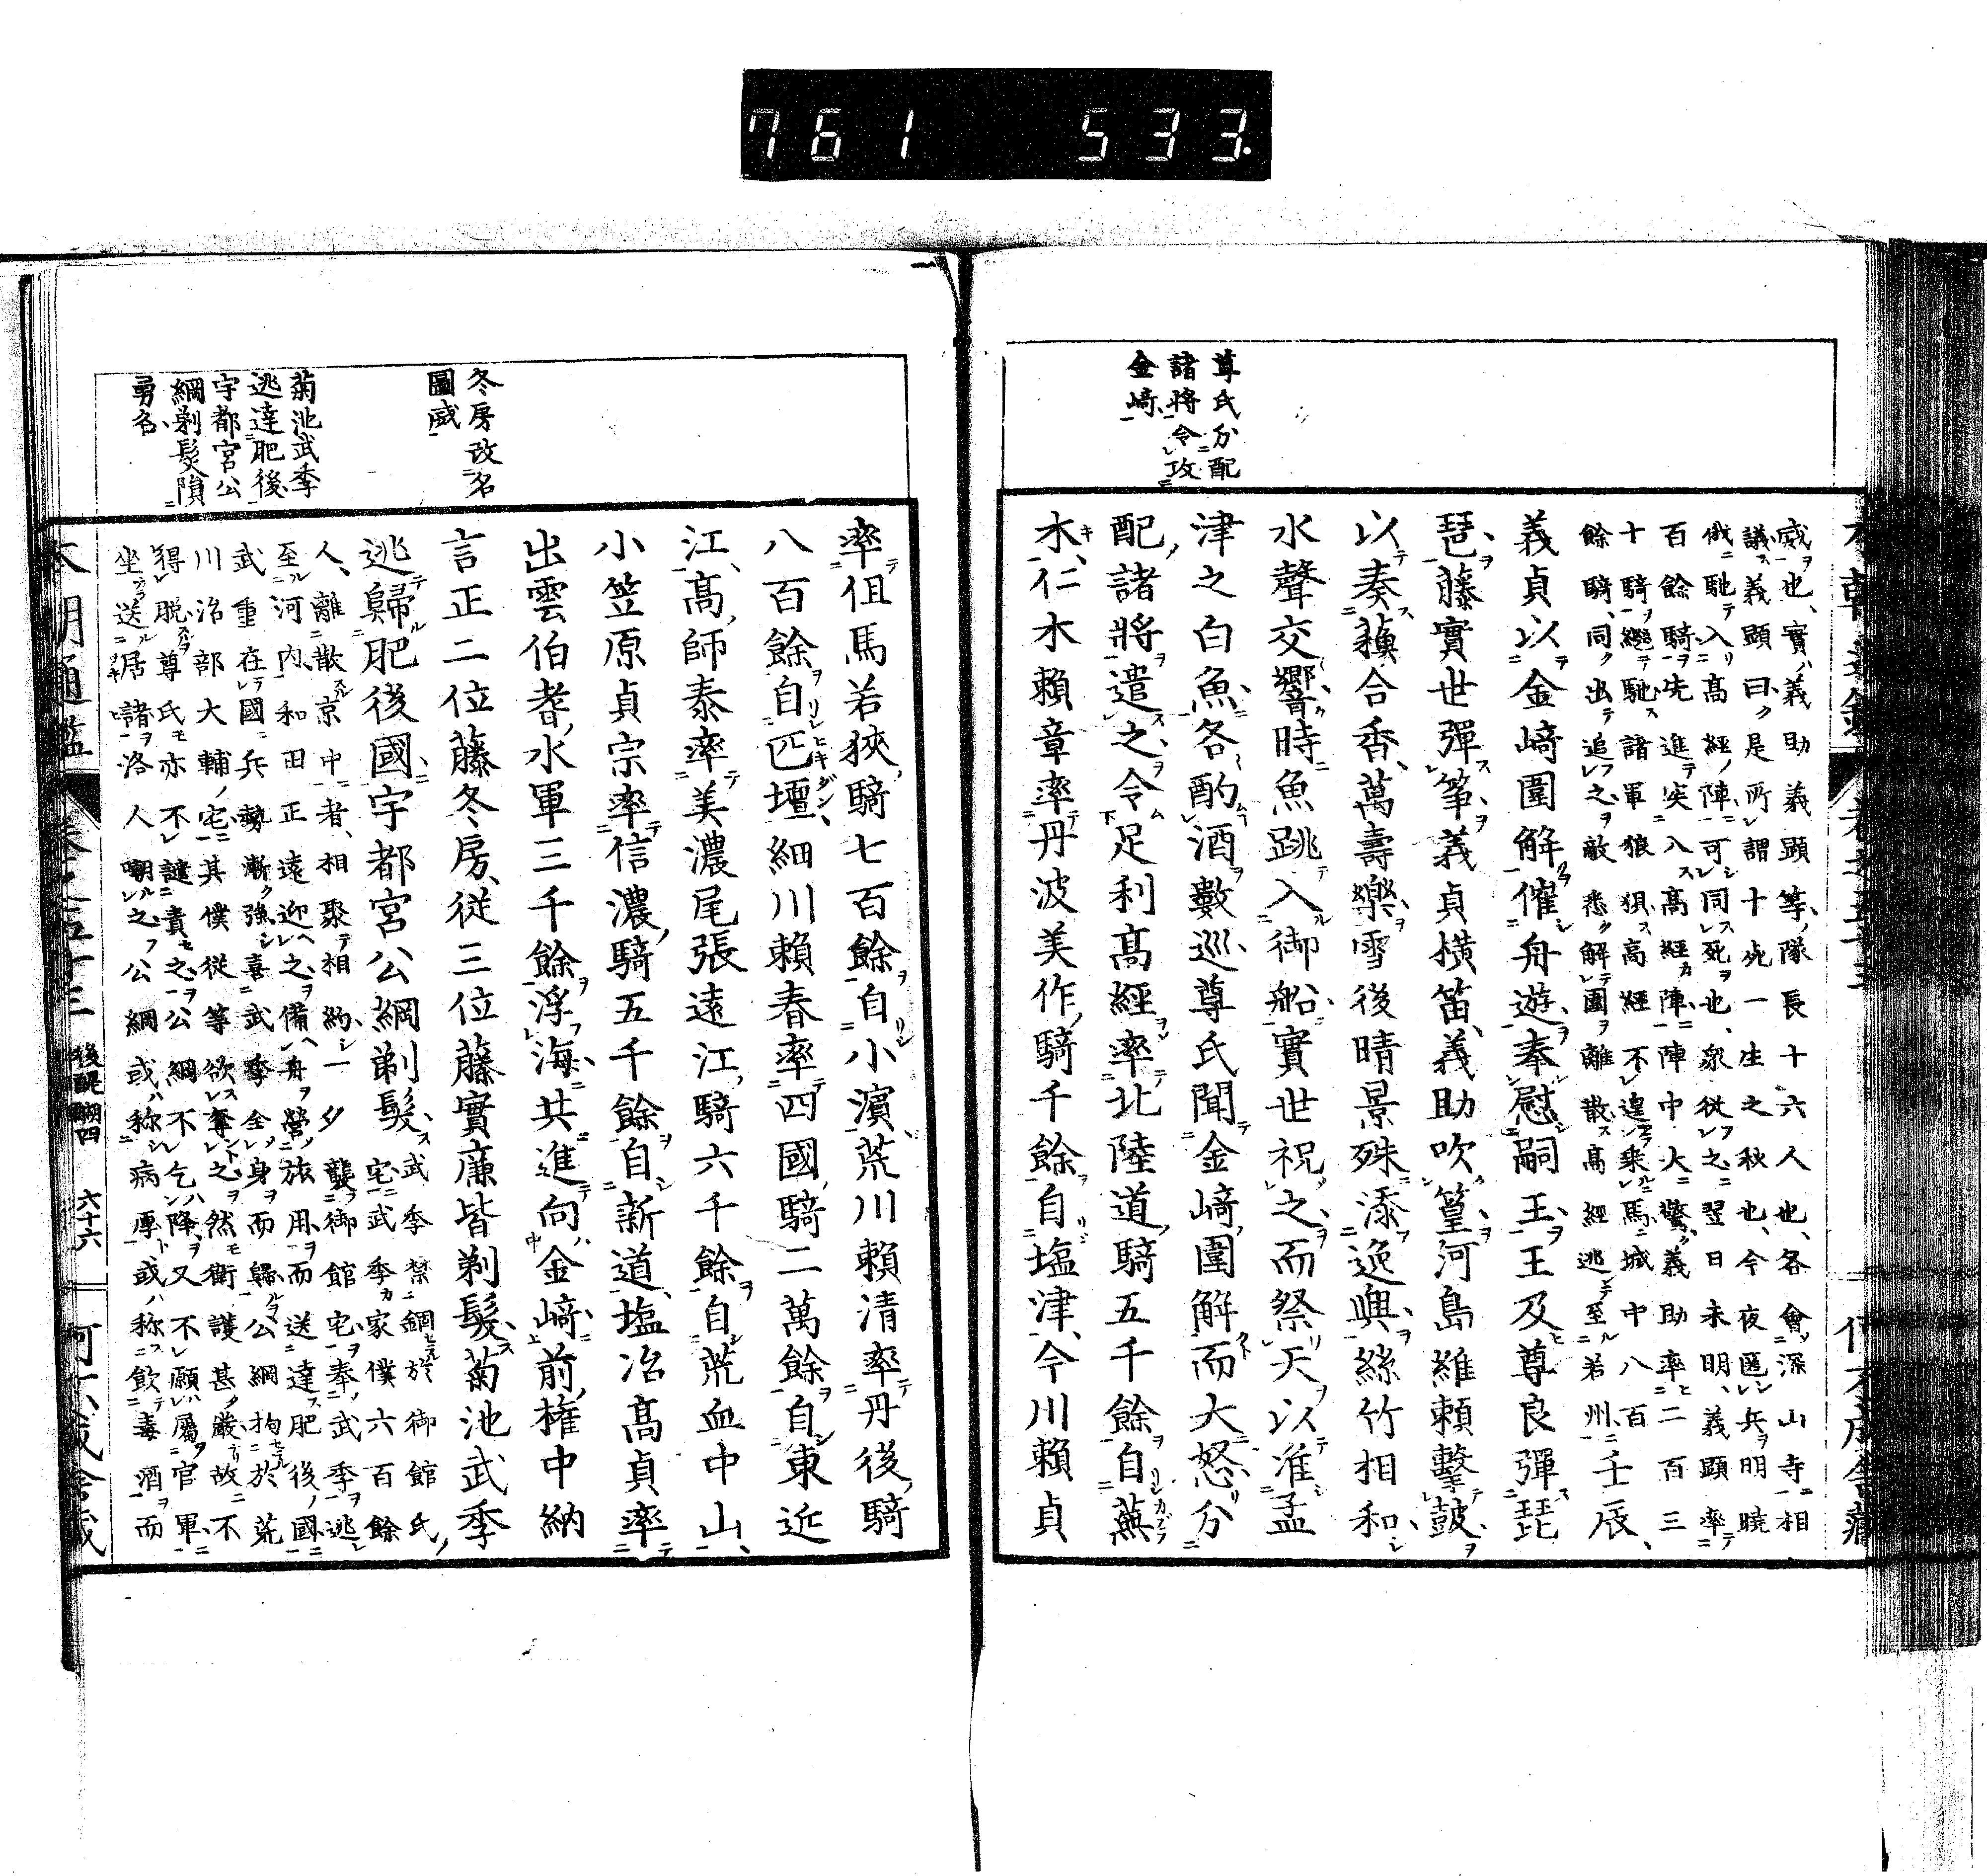 761 533.
尊氏分配
諸將令攻
金﨑
威也實義助義顕等隊長十六人也各會深山寺相
議義顕曰是所謂十死一生之秋也今夜匿兵明曉
俄馳入髙經陣可同死也衆從之翌日未明義顕率
百餘騎先進突入髙經陣陣中大驚義助率二百三
十騎繼馳諸軍狼狽髙經不遑乗馬城中八百
餘騎同出追之敵悉解圍離散髙經逃至若州壬辰
義貞以金﨑圍解催舟遊奉慰嗣王王及尊良彈琵
琶藤實世彈箏義貞横笛義助吹篁河島維賴擊鼓
以奏蘓合香萬壽樂雪後晴景殊添逸興絲竹相和
水聲交響時魚跳入御船實世祝之而祭天以准孟
津之白魚各酌酒數巡尊氏聞金﨑圍解而大怒分
配諸將遣之令足利髙經率北陸道騎五千餘自蕪
木仁木賴章率丹波美作騎千餘自塩津今川賴貞
冬房改名
圖威
菊池武季
逃達肥後
宇都宮公
綱剃髮隕
勇名
率但馬若狹騎七百餘自小濵荒川賴清率丹後騎
八百餘自匹壇細川賴春率四國騎二萬餘自東近
江髙師泰率美濃尾張遠江騎六千餘自荒血中山
小笠原貞宗率信濃騎五千餘自新道塩冶髙貞率
出雲伯耆水軍三千餘浮海共進向金﨑前權中納
言正二位藤冬房從三位藤實廉皆剃髮菊池武季
逃歸肥後國宇都宮公綱剃髮
武季禁錮於御館氏
宅武季家僕六百餘
人離散京中者相聚相約一夕襲御館宅奉武季逃
至河内和田正遠迎之備舟營旅用而送達肥後國
武重在國兵勢漸強喜武季全身而歸公綱拘於荒
川治部大輔宅其僕從等欲奪之然衛護甚嚴故不
得脱尊氏亦不譴責之公綱不乞降又不願屬官軍
坐送居諸洛人嘲之公綱或称病厚或称飲毒酒而
後醍醐四
六十六